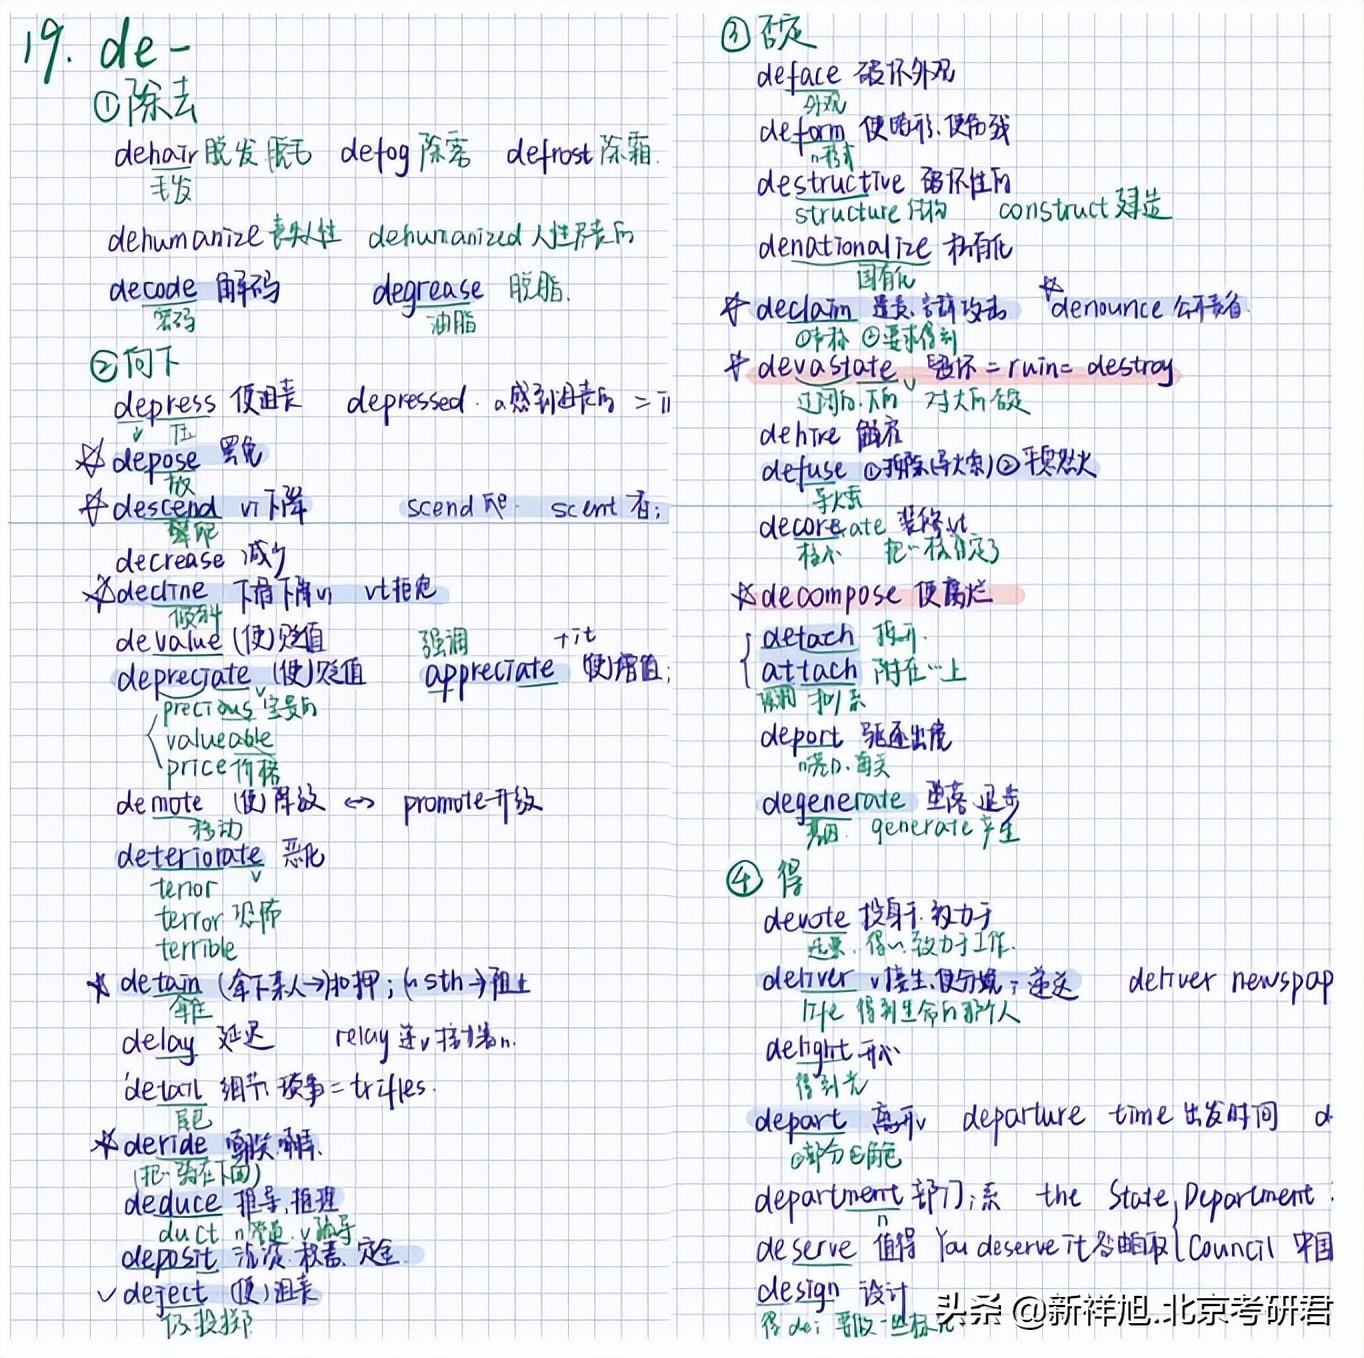 19. de-
①除去
dehair 脱发 脱毛 defog 除雾 defrost 除霜.
毛发
dehumanize 丧失人性 dehumanized 人性丧失的
decode 解码 degrease 脱脂.
密码 油脂
②向下
depress 使沮丧 depressed. a感到沮丧的 =
↓ 压
☆ depose 罢免
放
☆ descend vi下降 scend 爬. scent 香;
攀爬
decrease 减少
☆ decline 下滑下降vi vt拒绝
倾斜
devalue (使)贬值 强调 +it
depreciate (使)贬值 appreciate (使)增值;
precious 宝贵的
valueable
price 价格
demote (使)降级 ↔ promote 升级
移动
deteriorate 恶化
terior
terror 恐怖
terrible
☆ detain (拿下某人→)扣押; (~sth→)阻止
拿住
delay 延迟 relay 连v 接力赛n.
detail 细节 琐事 = trifles.
尾巴
☆ deride 嘲笑.嘲弄.
(把…骑在下面)
deduce 推导,推理
duct n管道. v 引导
deposit 沉淀.积蓄.定金
✓ deject (使)沮丧
投掷
③否定
deface 破坏外观
外观
deform 使畸形.使伤残
n形式
destructive 破坏性的
structure 结构 construct 建造
denationalize 私有化
国有化
☆ declaim 谴责.言辞攻击 ☆ denounce 公开谴责
①声称 ②要求得到
☆ devastate 毁坏 = ruin = destroy
对大的否定
dehire 解雇
defuse ①拆除(导火索)②平息怒火
导火索
decoreate 装修vt
核心 把…核否定了
☆ decompose 使腐烂
detach 拆开.
attach 附在…上
强调
deport 驱逐出境
n港口.海关
degenerate 堕落.退步
基因. generate 产生
④ 得
devote 投身于.致力于
得…致力于工作.
deliver v接生.使分娩; 递送 deliver newspap
life 得到生命的那个人
delight 开心
得到光
depart 离开v departure time 出发时间 d
①部分②角色
department 部门;系 the State Department :
n
deserve 值得 You deserve it 咎由自取 Council 中国
design 设计
得 de; 要做一些标记
头条 @新祥旭.北京考研君